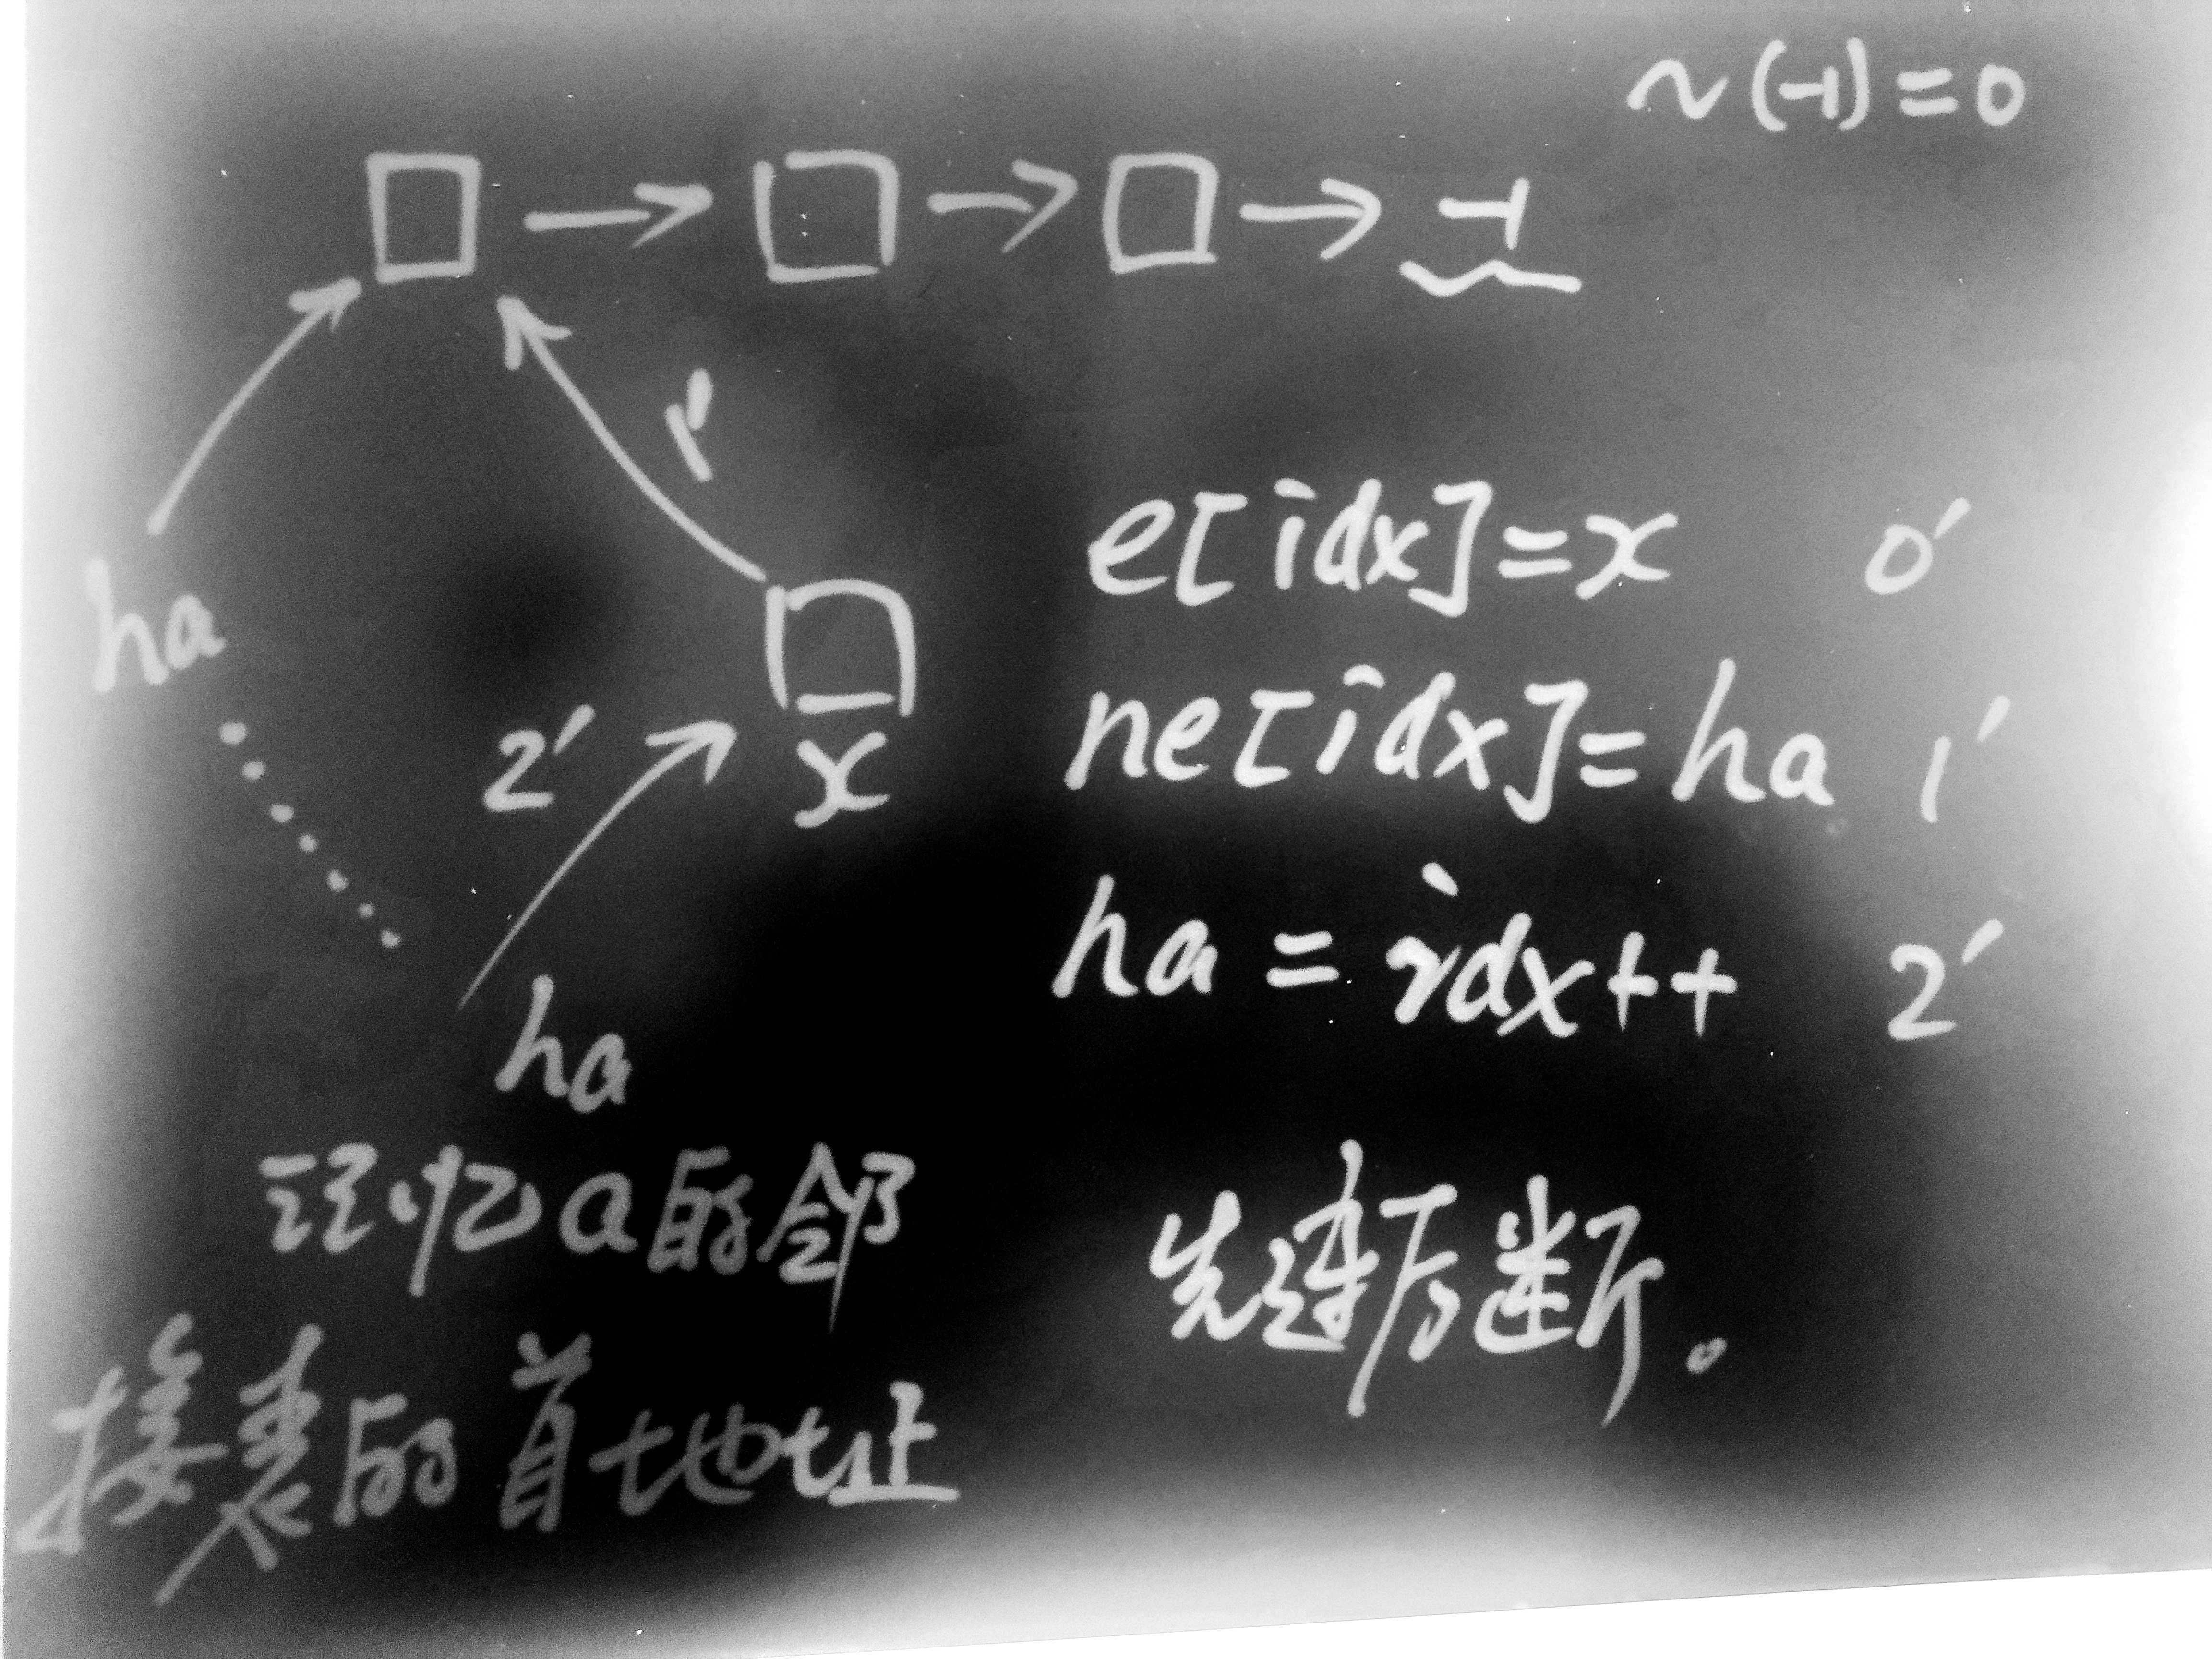 ~(-1)=0
□ → □ → □ → -1
1'
ha
e[idx]=x 0'
ne[idx]=ha 1'
2'
x
ha = idx++ 2'
ha
记忆a的邻
接表的首地址
先连后断。